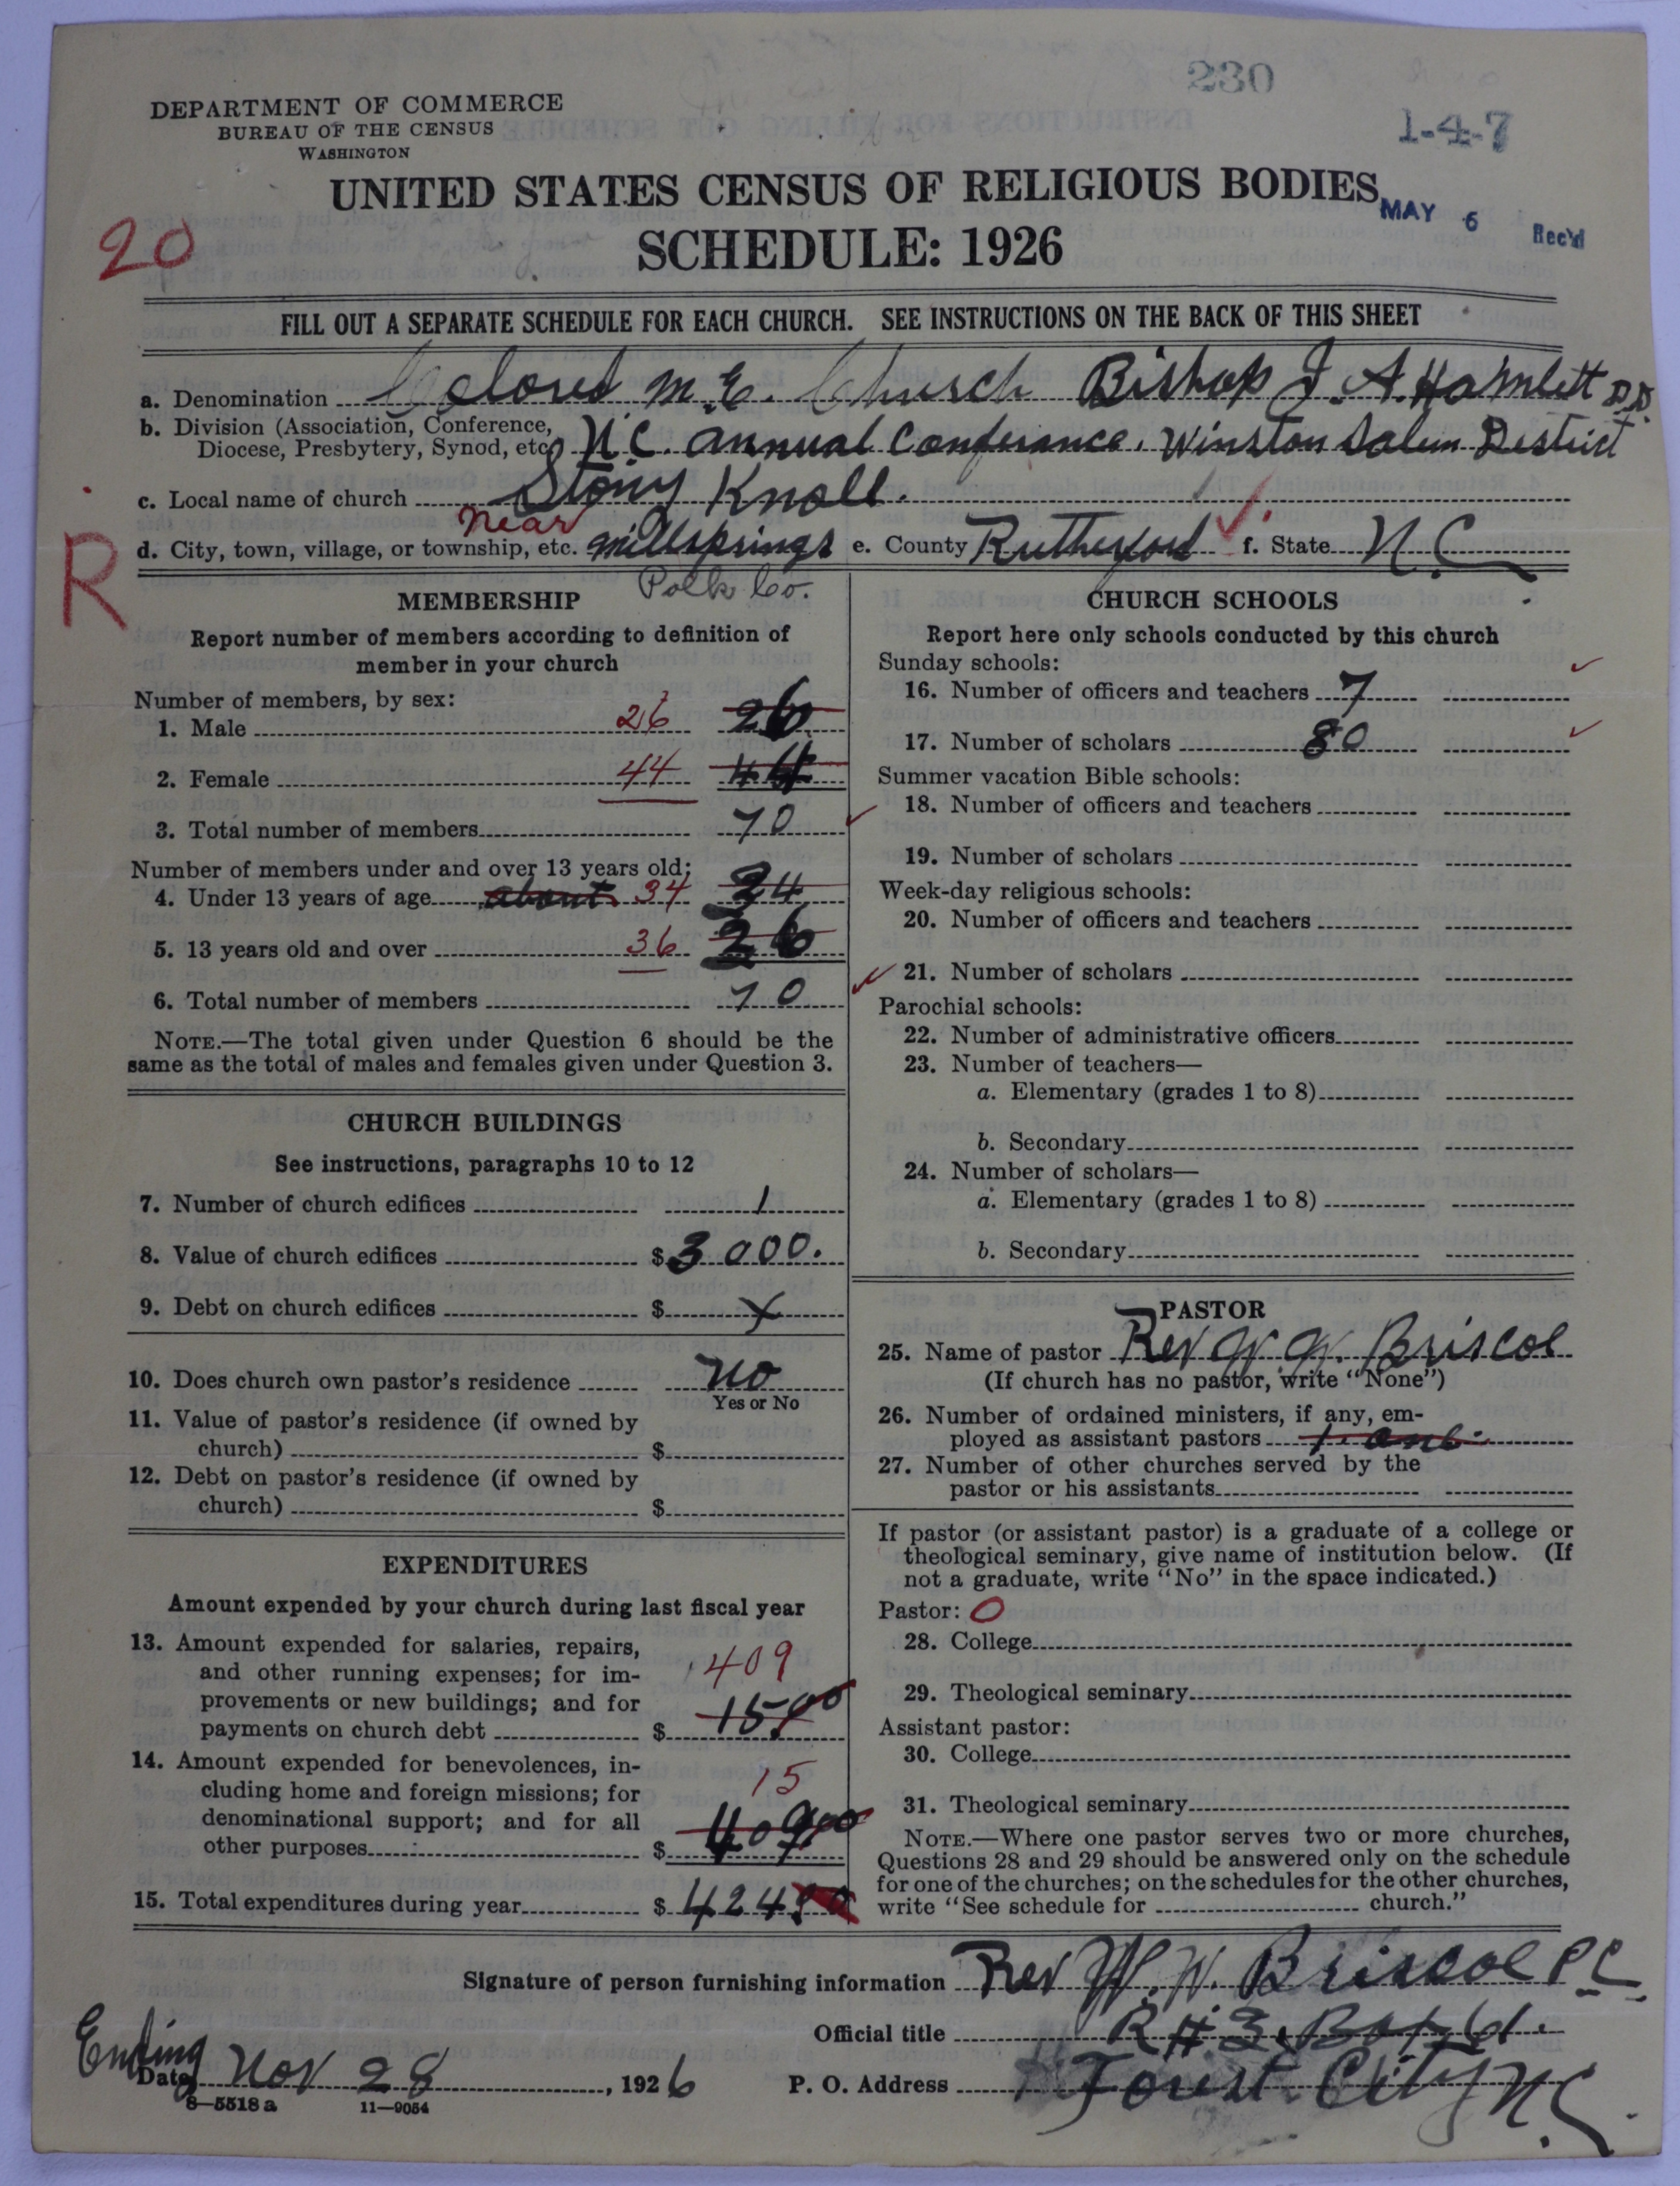 230
DEPARTMENT OF COMMERCE
BUREAU OF THE CENSUS
WASHINGTON
1-4-7
UNITED STATES CENSUS OF RELIGIOUS BODIES
MAY 6 Rec'd
20
SCHEDULE: 1926
FILL OUT A SEPARATE SCHEDULE FOR EACH CHURCH. SEE INSTRUCTIONS ON THE BACK OF THIS SHEET
a. Denomination Colored M.E. Church Bishop J. A. Hamlett D.D.
b. Division (Association, Conference,
Diocese, Presbytery, Synod, etc. N.C. Annual Conference. Winston Salem District
c. Local name of church Stony Knoll.
near
d. City, town, village, or township, etc. Millsprings e. County Rutherford f. State N.C.
R
Polk Co.
MEMBERSHIP
Report number of members according to definition of
member in your church
Number of members, by sex:
1. Male 26 26
2. Female 44 44
3. Total number of members 70
Number of members under and over 13 years old:
4. Under 13 years of age about 34 34
5. 13 years old and over 36 36
6. Total number of members 70
NOTE.—The total given under Question 6 should be the
same as the total of males and females given under Question 3.
CHURCH BUILDINGS
See instructions, paragraphs 10 to 12
7. Number of church edifices 1
8. Value of church edifices $ 3000.
9. Debt on church edifices $ x
10. Does church own pastor's residence No
Yes or No
11. Value of pastor's residence (if owned by
church) $
12. Debt on pastor's residence (if owned by
church) $
EXPENDITURES
Amount expended by your church during last fiscal year
13. Amount expended for salaries, repairs,
and other running expenses; for im-
provements or new buildings; and for
payments on church debt $ 409 15.00
14. Amount expended for benevolences, in-
cluding home and foreign missions; for
denominational support; and for all
other purposes $ 15 409.00
15. Total expenditures during year $ 424
CHURCH SCHOOLS
Report here only schools conducted by this church
Sunday schools:
16. Number of officers and teachers 7
17. Number of scholars 80
Summer vacation Bible schools:
18. Number of officers and teachers
19. Number of scholars
Week-day religious schools:
20. Number of officers and teachers
21. Number of scholars
Parochial schools:
22. Number of administrative officers
23. Number of teachers—
a. Elementary (grades 1 to 8)
b. Secondary
24. Number of scholars—
a. Elementary (grades 1 to 8)
b. Secondary
PASTOR
25. Name of pastor Rev W. W. Briscoe
(If church has no pastor, write "None")
26. Number of ordained ministers, if any, em-
ployed as assistant pastors 1. one.
27. Number of other churches served by the
pastor or his assistants
If pastor (or assistant pastor) is a graduate of a college or
theological seminary, give name of institution below. (If
not a graduate, write "No" in the space indicated.)
Pastor: O
28. College
29. Theological seminary
Assistant pastor:
30. College
31. Theological seminary
NOTE.—Where one pastor serves two or more churches,
Questions 28 and 29 should be answered only on the schedule
for one of the churches; on the schedules for the other churches,
write "See schedule for church."
Signature of person furnishing information Rev W. W. Briscoe P.C.
Official title R # 3, Box 61.
Ending
Date Nov 28, 1926 P. O. Address Forest City N.C.
8—5518 a 11—9054